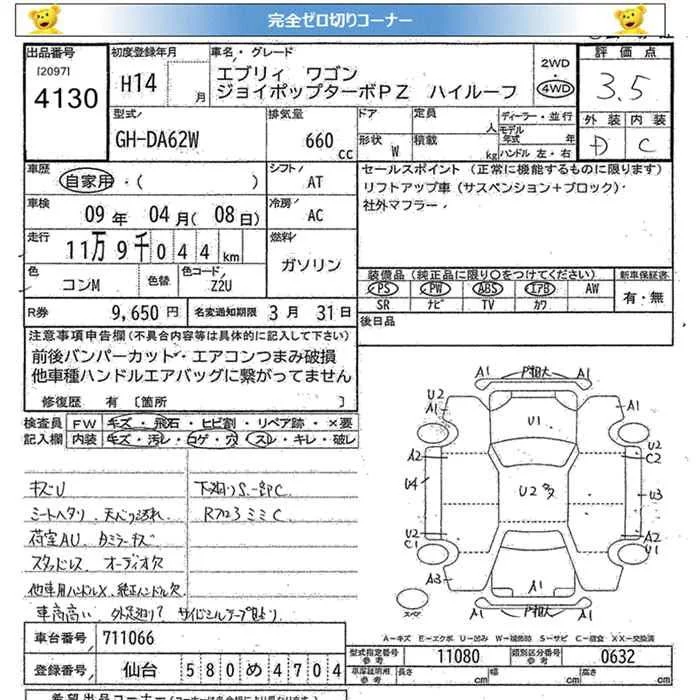 完全ゼロ切りコーナー
出品番号 初度登録年月 車名・グレード 評価点
[2097] エブリィ ワゴン 2WD
4130 H14 月 ジョイポップターボPZ ハイルーフ 4WD 3.5
型式 排気量 ドア 定員 人 ディーラー・並行 外装 内装
モデル年式 年
GH-DA62W 660 cc 形状 W 積載 kg ハンドル 左・右 D C
車歴 シフト セールスポイント (正常に機能するものに限ります)
自家用・( ) AT リフトアップ車(サスペンション+ブロック)・
車検 冷房 社外マフラー・
09 年 04 月(08 日) AC
走行 燃料
11万9千044 km ガソリン
色 色替 色コード 装備品(純正品に限り〇をつけてください) 新車保証書
コンM Z2U PS PW ABS エアB AW 有・無
SR ナビ TV カワ
R券 9,650 円 名変通知期限 3 月 31 日 後日品
注意事項申告欄(不具合内容等は具体的に記入して下さい)
前後バンパーカット・エアコンつまみ破損
他車種ハンドルエアバッグに繋がってません
修復歴 有 〔箇所 〕
検査員 FW キズ・飛石・ヒビ割・リペア跡・×要
記入欄 内装 キズ・汚レ・コゲ・穴・スレ・キレ・破レ
キズU 下廻りS.一部C
シートヘタリ、天バリ汚れ R フロミミC
荷室AU
スタッドレス オーディオ欠
他車用ハンドルX、純正ハンドル欠
車高高い
A1 A1
U2 A1 A1
U1
A2 U2 C2
U4 U2多 U3
U2 C1 A2 U1
A3 A1 A2
スペア A1 A1
A-キズ E-エクボ U-凹み W-補修跡 S-サビ C-腐食 XX-交換済
車台番号 711066
型式指定番号 参考 11080 類別区分番号 参考 0632
登録番号 仙台 580 め 4704
車庫証明用 参考 長さ cm 幅 cm 高さ cm
希望出品コーナー